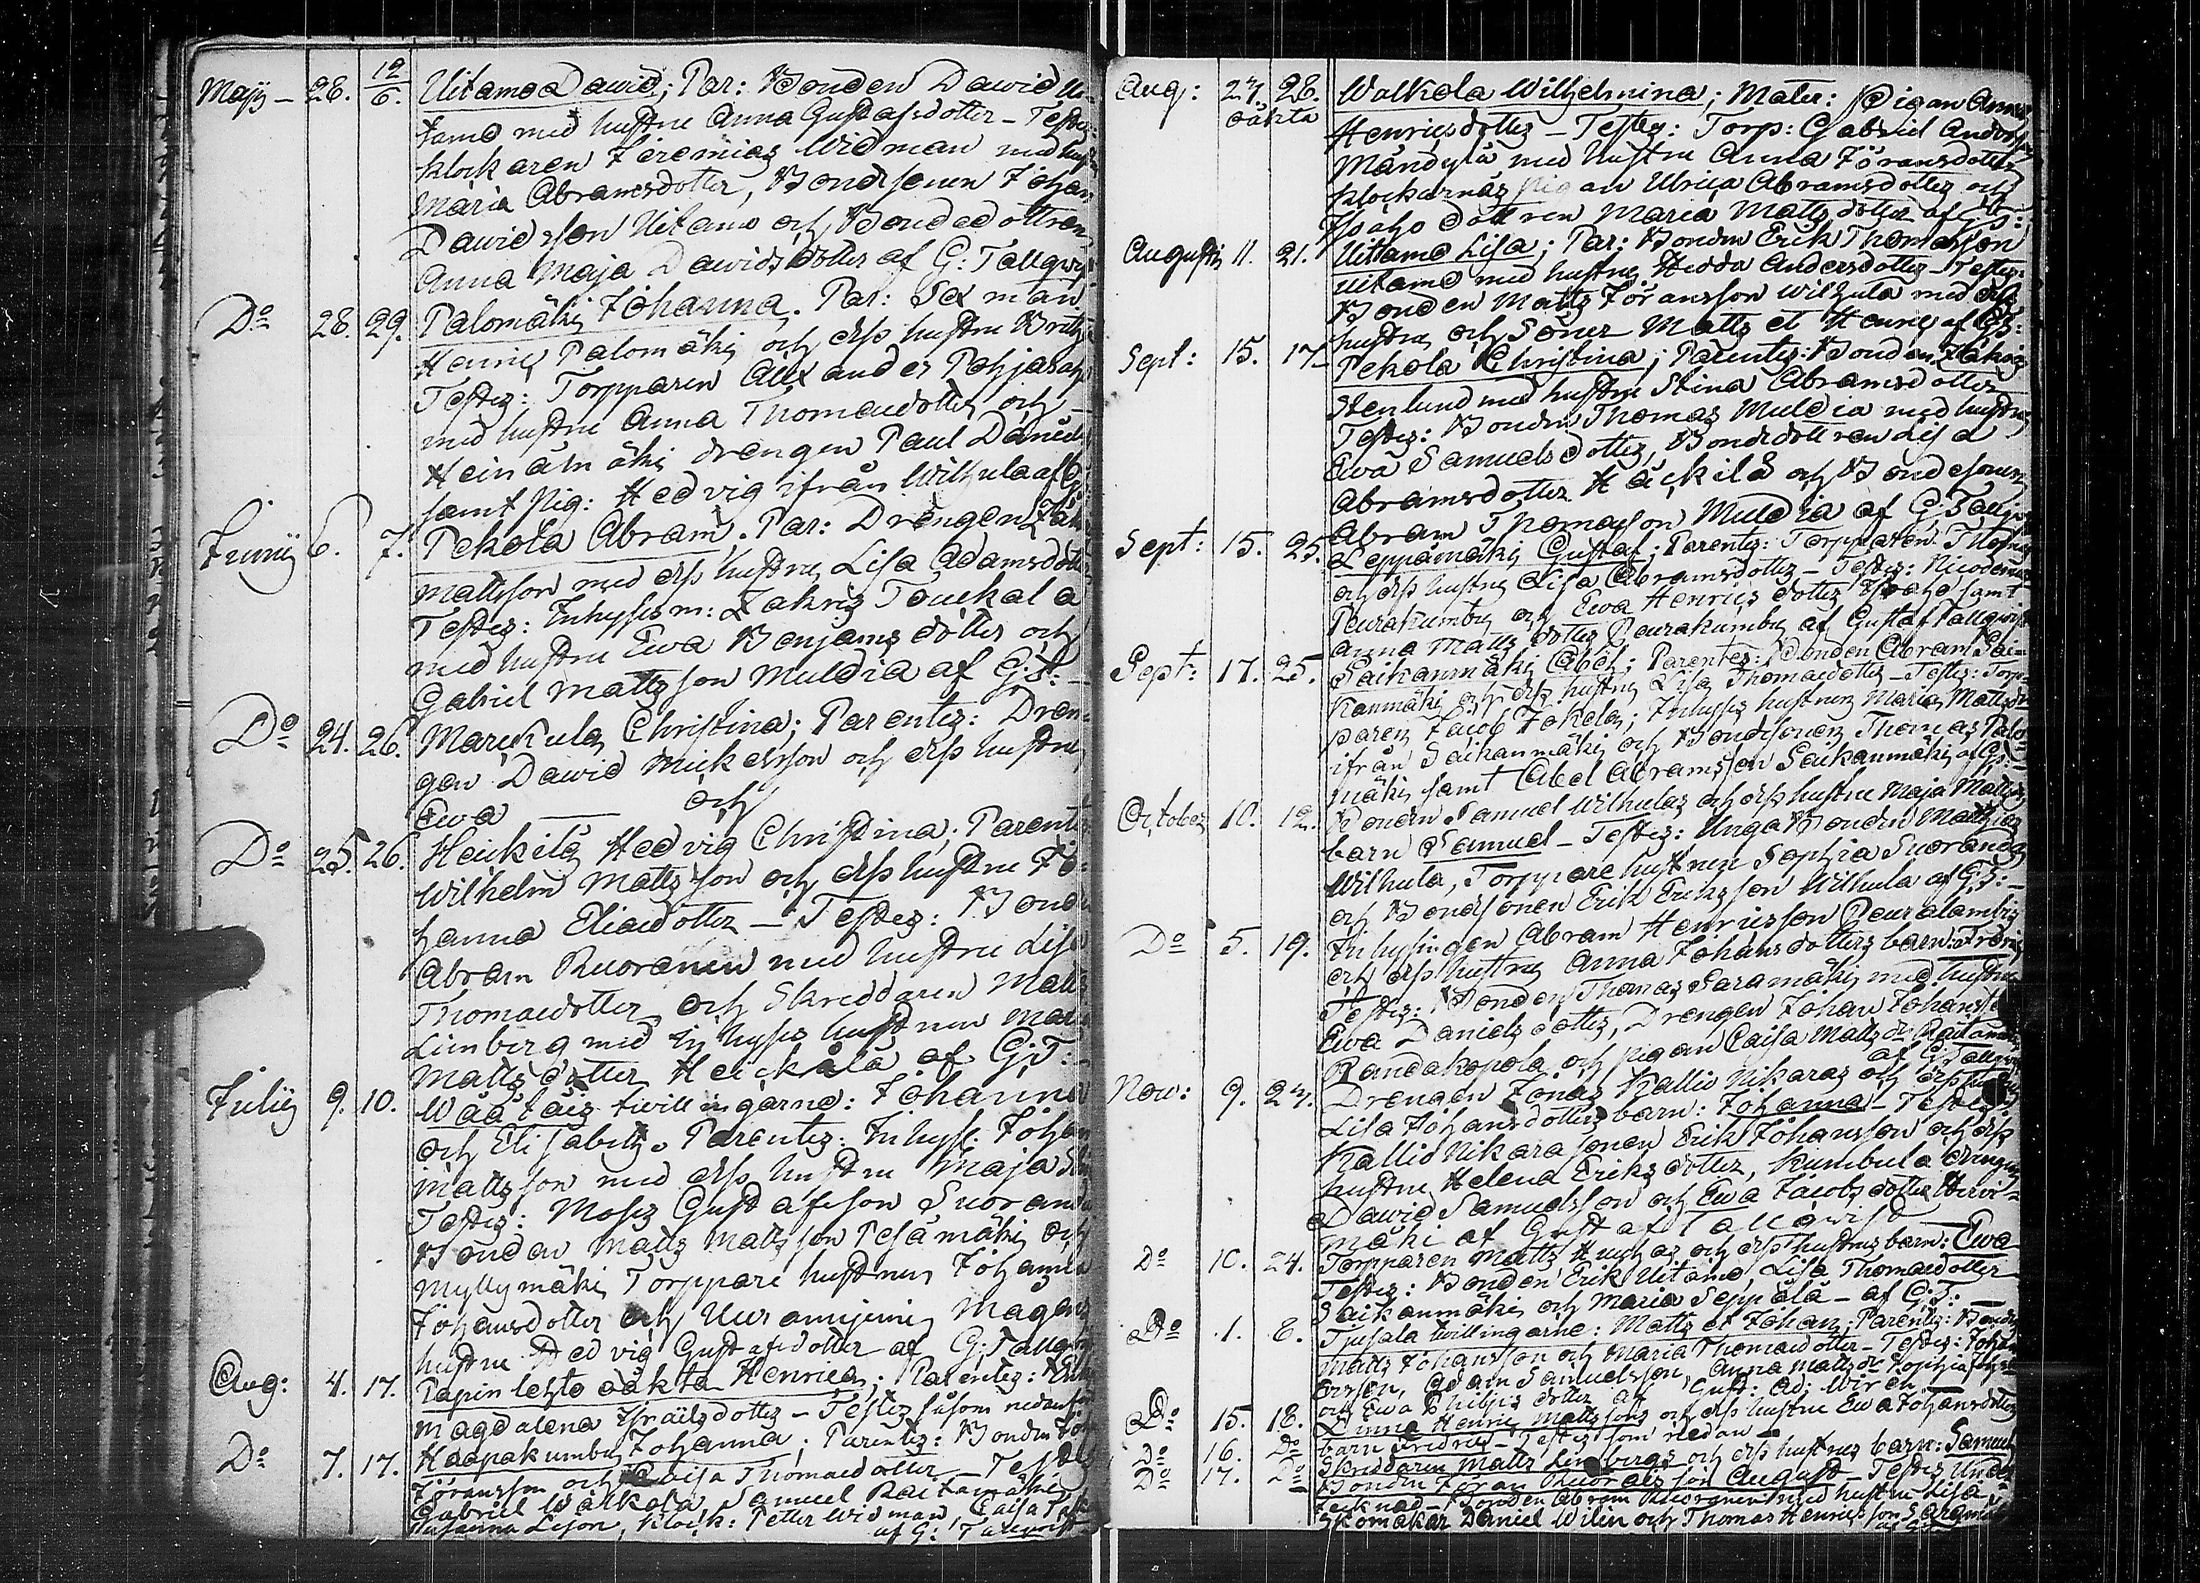 Maji – 28. 12/6. Uitamo David; Par: Bonden David Ui-
tamo med hustru Anna Gustafsdotter – Testes:
klockaren Jeremias Widman med hustru
Maria Abramsdotter, Bondesonen Johan
Davidsson Uitamo och Bondedottren
Anna Maja Davidsdotter af G: Tallqvist
Do 28. 29. Palomäki Johanna. Par: Sexman
Henric Palomäki och dess hustru Britha
Testes: Torpparen Alexander Pohjaraho
med hustru Anna Thomaedotter och
Heinämäki drengen Paul Daniels
samt Pig: Hedvig ifrån Wilhula af G:
Junii 6. 7. Pekola Abram. Par: Drengen Johan
Mattsson med dess hustru Lisa Adamsdotter
Testes: Inhyses m: Zakris Toukola
med hustru Ewa Benjamsdotter och
Gabriel Mattsson Muldia af G:T: –
Do 24. 26. Marckula Christina; Parentes: Dren-
gen David Mickelsson och dess hustru
Ewa ——— och
Do 25. 26. Heickilä Hedvig Christina; Parentes
Wilhelm Mattsson och dess hustru Jo-
hanna Eliaedotter – Testes: Bonden
Abram Ruoranen med hustru Lisa
Thomaedotter och Skreddaren Matts
Limberg med inhyses hustrun Maria
Mattsdotter Heickälä af G:T: –
Julii 9. 10. Wäätäis twillingarne: Johanna
och Elisabeth. Parentes: Inhys: Johan
Mattsson med dess hustru Maja
Testes: Moses Gustafsson Suoranda
Bonden Matts Mattsson Pesämäki och
Myllymäki Torppare hustrun Johanna
Johansdotter och Magens
hustru Hedvig Gustafsdotter af G: Tallqvist
Aug: 4. 17. Papinlehto oäkta Henrica; Parentes:
Magdalena Israelsdotter – Testes såsom nedanför
Do 7. 17. Haapakumbu Johanna; Parentes: Bonden
Jöransson och Caisa Thomaedotter – Testes
Gabriel Walkola, Samuel Rautamäki
Susanna Leson, Klock: Petter Widman, Caisa
af G: Tallqvist
Aug: 27. 28. Walkola Wilhelmina; Mater: Pigan Anna
oäkta Henricsdotter – Testes: Torp: Gabriel Anders
Mändylä med hustru Anna Jöransdotter
klockarnäs Pigan Ulrica Abramsdotter och
Isoaho dottren Maria Mattsdotter af G:T:
Augusti 11. 21. Uitamo Lisa; Par: Bonden Erik Thomasson
Uitamo med hustru Hedda Andersdotter – Testes:
Bonden Matts Jöransson Wilhula med dess
hustru och Söner Matts et Henric af G:T:
Sept: 15. 17. Pekola Christina; Parentes: Bonden Zakris
Stenlund med hustru Stina Abramsdotter
Testes: Bonden Thomas Muldia med hustru
Ewa Samuelsdotter, Bondedottren Lisa
Abramsdotter Häckilä och Bondesonen
Abram Thomasson Muldia af G: Tallqvist
Sept: 15. 25. Leppämäki Gustaf; Parentes: Torpparen Thomas
och dess hustru Lisa Abramsdotter – Testes: Nicodemus
Peurakumbu och Ewa Henricsdotter Isoaho samt
Anna Mattsdotter Peurakumbu af Gustaf Tallqvist
Sept: 17. 25. Saikanmäki Abel; Parentes: Bonden Abram Sai-
kanmäki och dess hustru Lisa Thomaedotter – Testes: Torp-
paren Jacob Jokela; Inhyses hustrun Maria Mattsdr
ifrån Saikanmäki och Bondesonen Thomas Palo-
mäki samt Abel Abramsson Saikanmäki af G:
October 10. 12. Bonden Samuel Wilhulas och dess hustru Maja Mattsdr
barn Samuel – Testes: Unga Bonden Matthias
Wilhula, Torppare hustrun Sophia Suoranda
och Bondesonen Erik Eriksson Wilhula af G:T: –
Do 5. 19. Inhysingen Abram Henricsson Peuralambis
och dess hustru Anna Johansdotters barn: Fredric
Testes: Bonden Thomas Saramäki med hustru
Ewa Danielsdotter, Drengen Johan Johansson
Randakopola och pigan Caisa Mattsdr Rautamäki
af G: Tallqvist
Nov: 9. 24. Drengen Jonas Kallio Nikaras och dess hustru
Lisa Johansdotters barn: Johanna – Testes:
Kallio Nikara sonen Erik Johansson och dess
hustru Helena Eriksdotter, Kumbula drengen
David Samuelsson och Ewa Jacobsdotter Hirvi-
mäki af Gustaf Tallqvist
Do 10. 24. Torpparen Matts Huuhas och dess hustrus barn: Ewa
Testes: Bonden Erik Uitamo, Lisa Thomaedotter
Saikanmäki och Maria Seppälä – af G:T: –
Do 1. 8. Tjusala twillingarne: Matts et Johan; Parentes: Bonden
Matts Johansson och Maria Thomaedotter – Testes: Johan
Ersson, Adam Samuelsson, Anna Mattsdr Sophia
och Ewa Philipsdotter af Gust: Ad: Wirén.
Do 15. 18. Henric Mattssons och dess hustru Ewa Johansdotters
barn Fredric – Testes som nedan –
Do 16. Do Skreddaren Matts Limbergs och dess hustrus barn: Samuel
Do 17. Do Bonden Jöran Ruorais son August – Testes Under-
tecknad – Bonden Abram Ruoranen med hustru Lisa
Skomakar Daniel Wilén och Thomas Henricsson Saramäki